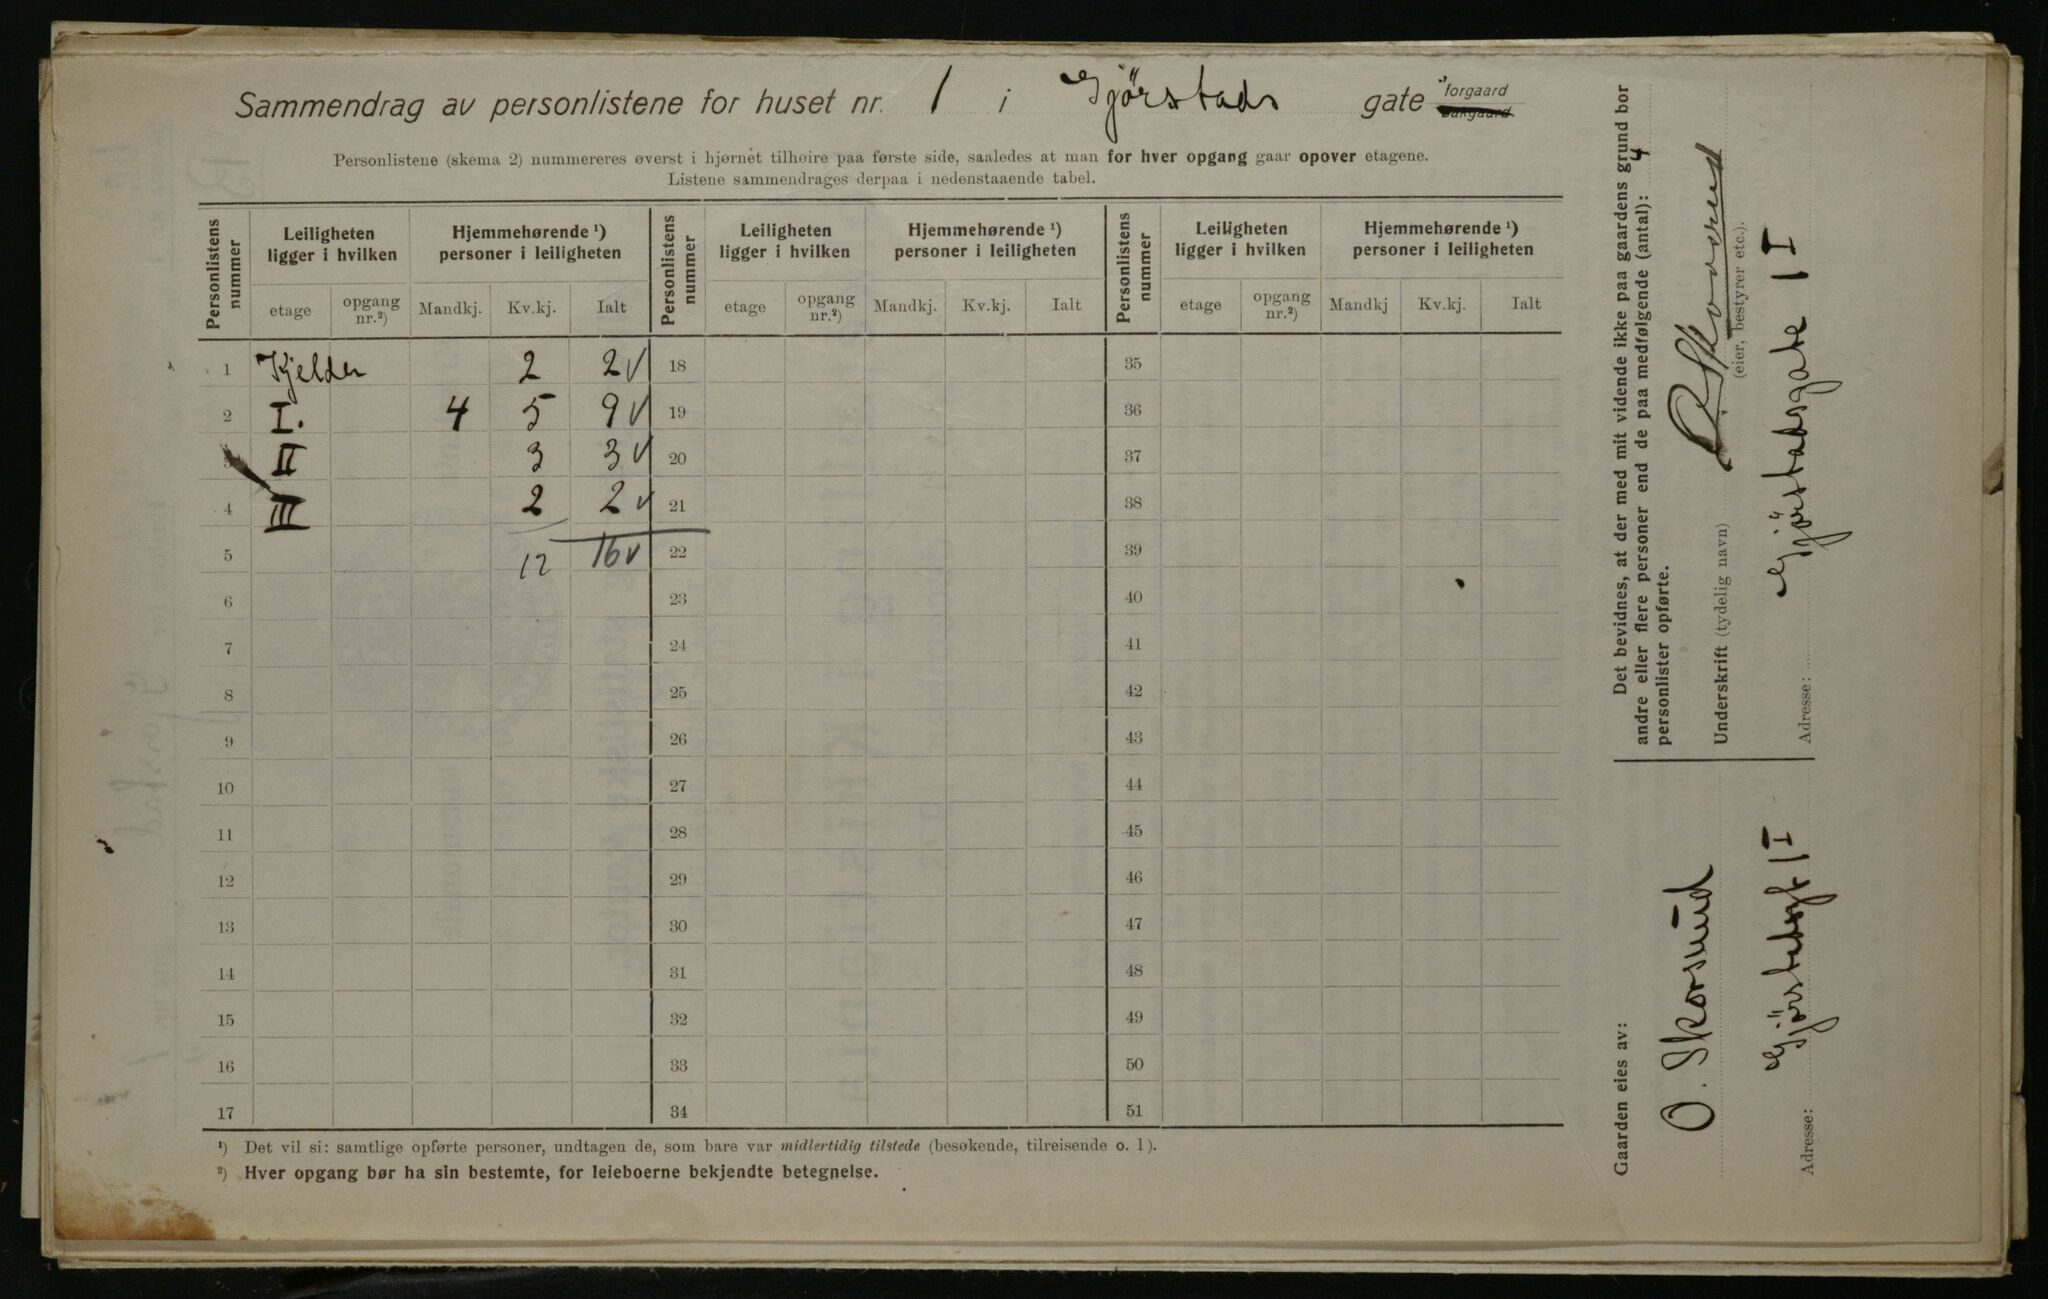 Sammendrag av personlistene for huset nr. 1 i Gjørstads gate forgaard
bakgaard
Personlistene (skema 2) nummereres øverst i hjørnet tilhøire paa første side, saaledes at man for hver opgang gaar opover etagene.
Listene sammendrages derpaa i nedenstaaende tabel.
Personlistens nummer | Leiligheten ligger i hvilken | Hjemmehørende ¹) personer i leiligheten | Personlistens nummer | Leiligheten ligger i hvilken | Hjemmehørende ¹) personer i leiligheten | Personlistens nummer | Leiligheten ligger i hvilken | Hjemmehørende ¹) personer i leiligheten
etage | opgang nr.²) | Mandkj. | Kv.kj. | Ialt | etage | opgang nr.²) | Mandkj. | Kv.kj. | Ialt | etage | opgang nr.²) | Mandkj | Kv.kj. | Ialt
1 Kjelder 2 2 v 18 35
2 I. 4 5 9 v 19 36
3 II 3 3 v 20 37
4 III 2 2 v 21 38
5 12 16 v 22 39
6 23 40
7 24 41
8 25 42
9 26 43
10 27 44
11 28 45
12 29 46
13 30 47
14 31 48
15 32 49
16 33 50
17 34 51
¹) Det vil si: samtlige opførte personer, undtagen de, som bare var midlertidig tilstede (besøkende, tilreisende o. l).
²) Hver opgang bør ha sin bestemte, for leieboerne bekjendte betegnelse.
Det bevidnes, at der med mit vidende ikke paa gaardens grund bor
andre eller flere personer end de paa medfølgende (antal): 4
personlister opførte.
Underskrift (tydelig navn)
(eier, bestyrer etc.).
Adresse: Gjørstadsgate 1 I
Gaarden eies av:
O. Skorsund
Adresse: Gjørstadsgt 1 I